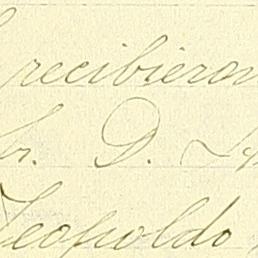 recibieron
Sr. D.
Leopoldo